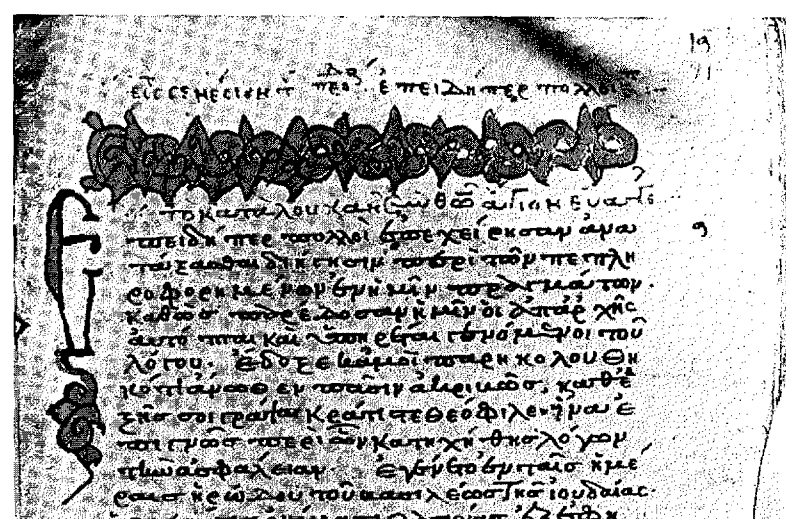 ἐπειδήπερ πολλοὶ
Ἐ
πειδήπερ πολλοὶ ἐπεχείρησαν ἀνα
τάξασθαι διήγησιν περὶ τῶν πεπλη
ροφορημένων ἐν ἡμῖν πραγμάτων.
καθὼς παρέδοσαν ἡμῖν οἱ ἀπαρχῆς
αὐτόπται καὶ ὑπηρέται γενόμενοι τοῦ
λόγου. ἔδοξε κἀμοὶ παρηκολουθη
κότι ἄνωθεν πᾶσιν ἀκριβῶς, καθε
ξῆς σοι γράψαι κράτιστε θεόφιλε· ἵνα ἐ
πιγνῶς περὶ ὧν κατηχήθης λόγων
τὴν ἀσφάλειαν. Ἐγένετο ἐν ταῖς ἡμέ
ραις ἡρώδου τοῦ βασιλέως τῆς ἰουδαίας·